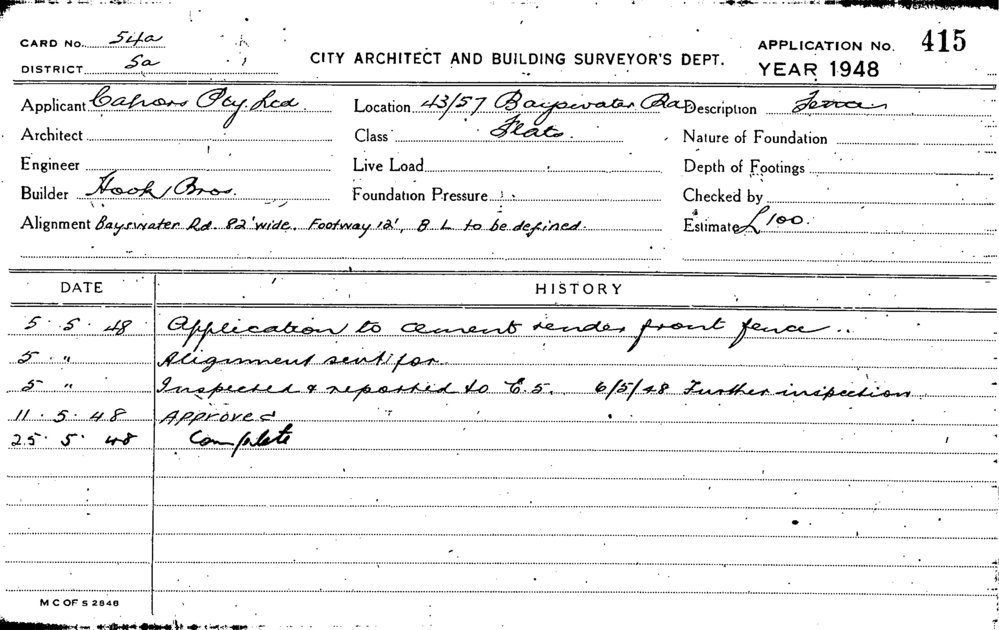 CARD No. 54a
DISTRICT 5a
CITY ARCHITECT AND BUILDING SURVEYOR'S DEPT.
APPLICATION No. 415
YEAR 1948
Applicant Cahors Pty. Ltd Location 43/57 Bayswater Rd Description Fence
Architect Class Flats. Nature of Foundation
Engineer Live Load Depth of Footings
Builder Hook Bros. Foundation Pressure Checked by
Alignment Bayswater Rd. 82' wide, Footway 12', B L to be defined. Estimate £100.
DATE HISTORY
5. 5. 48 Application to cement render front fence ..
5 " Alignment sent for
5 " Inspected & reported to C.S. 6/5/48 Further inspection
11. 5. 48 Approved
25. 5. 48 Complete
M C OF S 2848